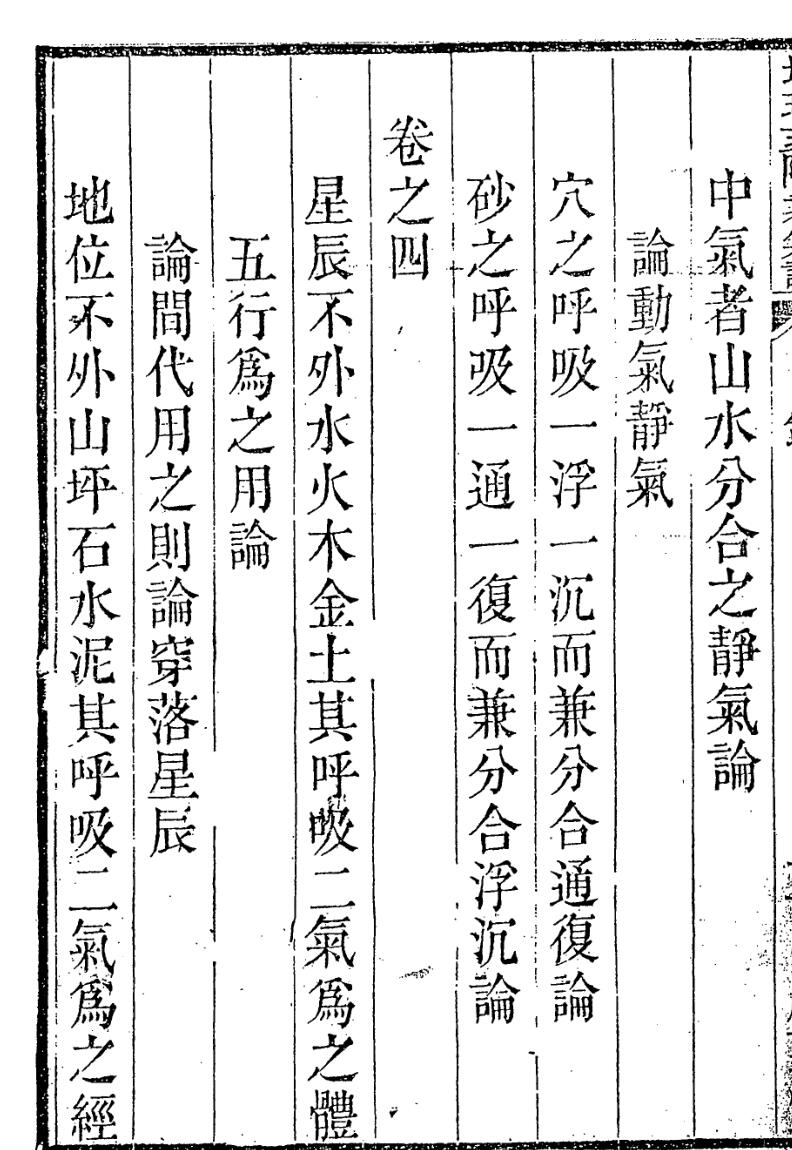 中氣者山水分合之靜氣論
論動氣靜氣
穴之呼吸一浮一沉而兼分合通復論
砂之呼吸一通一復而兼分合浮沉論
卷之四
星辰不外水火木金土其呼吸二氣爲之體
五行爲之用論
論間代用之則論穿落星辰
地位不外山坪石水泥其呼吸二氣爲之經